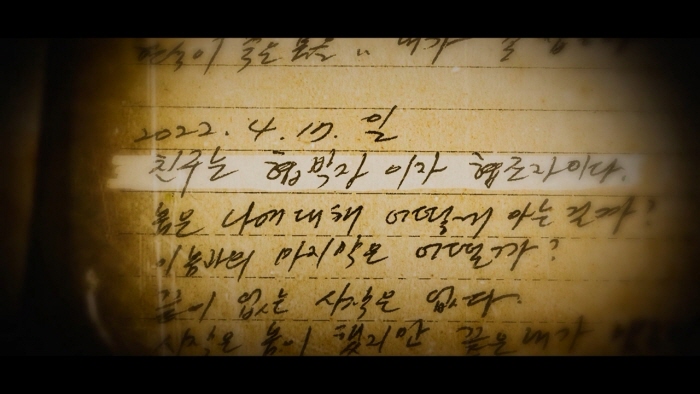 내가
2022. 4. 17. 일
친구는 협박장 이자 협조자이다.
놈은 나에 대해 어떻게 아는 걸까?
이놈과의 마지막은 어떨까?
끝이 없는 시작은 없다.
시작은 놈이 했지만 끝은 내가